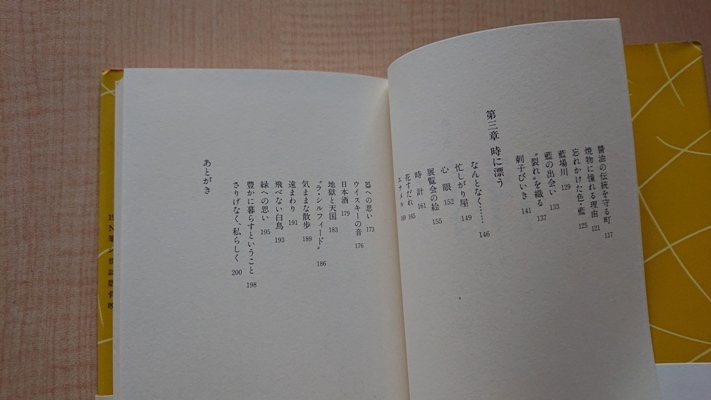 醤油の伝統を守る町 117
焼物に憧れる理由 121
忘れかけた色・藍 125
藍場川 129
藍の出会い 133
“裂れ”を織る 137
刺子びいき 141
第三章 時に漂う
なんとなく…… 146
忙しがり屋 149
心眼 152
展覧会の絵 155
時計 161
花すだれ 165
エナメル 169
器への思い 173
ウイスキーの音 176
日本酒 179
地獄と天国 183
“ラ・シルフィード” 186
気ままな散歩 189
遠まわり 191
飛べない白鳥 193
緑への思い 195
豊かに暮らすということ 198
さりげなく、私らしく 200
あとがき